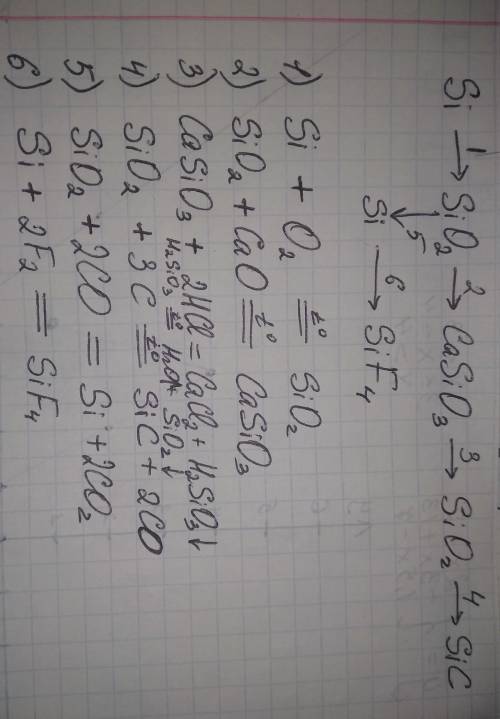 Si 1→ SiO₂ 2→ CaSiO₃ 3→ SiO₂ 4→ SiC
↓5
Si 6→ SiF₄
1) Si + O₂ t°= SiO₂
2) SiO₂ + CaO t°= CaSiO₃
3) CaSiO₃ + 2HCl = CaCl₂ + H₂SiO₃↓
H₂SiO₃ t°= H₂O + SiO₂↓
4) SiO₂ + 3C t°= SiC + 2CO
5) SiO₂ + 2CO = Si + 2CO₂
6) Si + 2F₂ = SiF₄